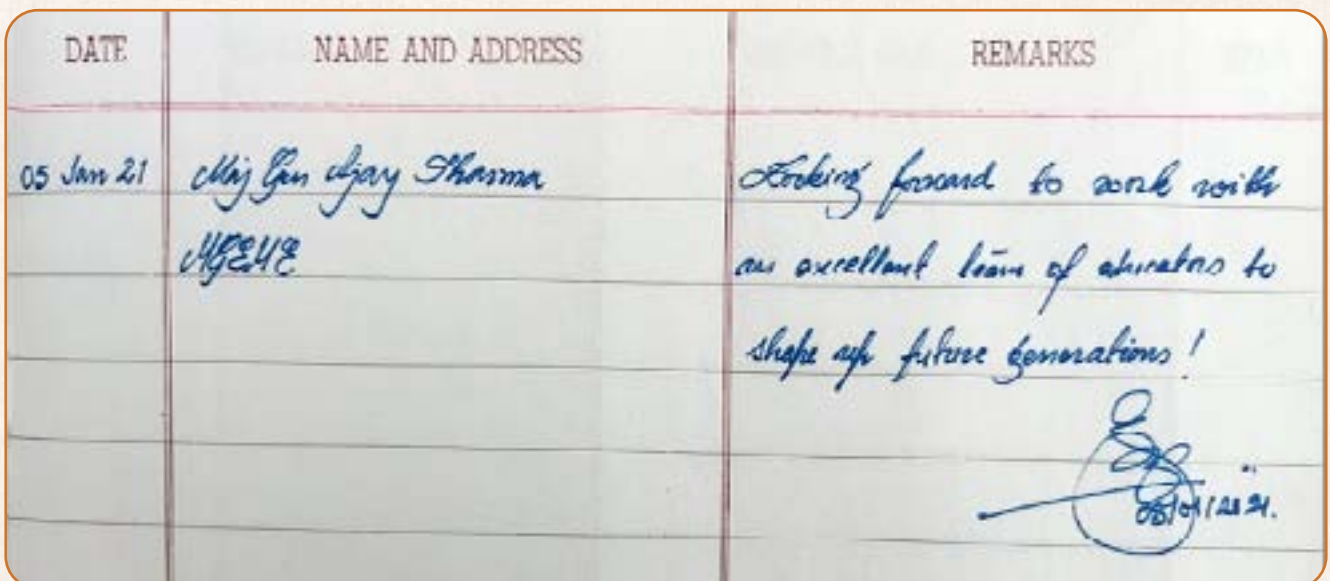 DATE NAME AND ADDRESS REMARKS
05 Jan 21 Maj Gen Ajay Sharma Looking forward to work with
MGEME an excellent team of educators to
shape up future generations!
05/01/2021.